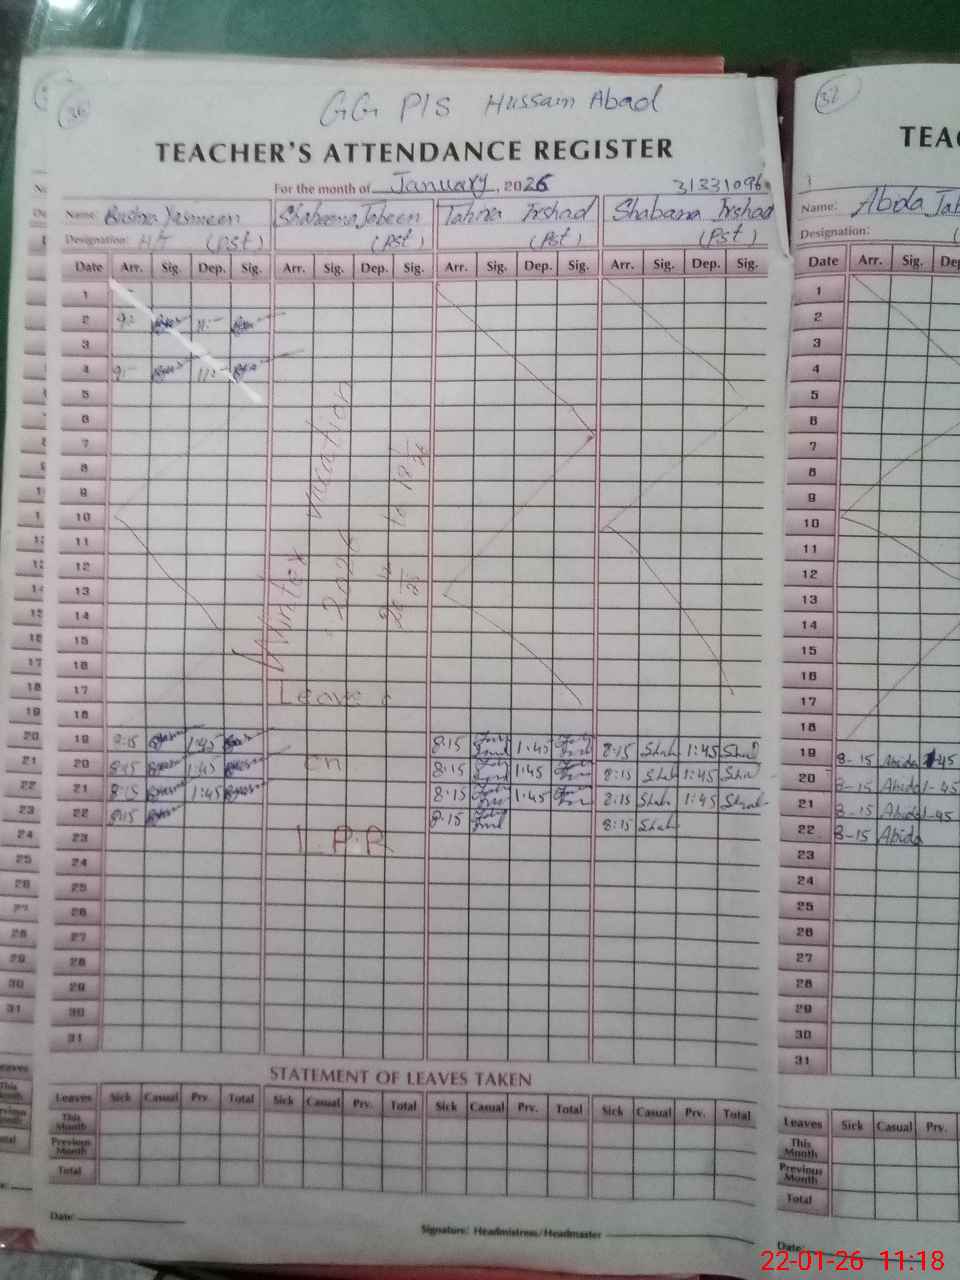 36
GG P/S Hussain Abad
TEACHER'S ATTENDANCE REGISTER
For the month of January, 2026 31331096
Name: Bushra Yasmeen Shaheena Jabeen Tahira Irshad Shabana Irshad
Designation: H/T (Pst) (Pst) (Pst) (Pst)
Date Arr. Sig. Dep. Sig. Arr. Sig. Dep. Sig. Arr. Sig. Dep. Sig. Arr. Sig. Dep. Sig.
1
2 9:- 11:-
3
4 9:- 11:-
5
6
7
8
9
10
11
12
13
14
15
16
17
18
Winter vacation
2026
to
Leave
on
L.P.R
19 8:15 1:45 8:15 1:45 8:15 Shab 1:45 Shab
20 8:15 1:45 8:15 1:45 8:15 Shab 1:45 Shab
21 8:15 1:45 8:15 1:45 8:15 Shab 1:45 Shab
22 8:15 8:15 8:15 Shab
23
24
25
26
27
28
29
30
31
STATEMENT OF LEAVES TAKEN
Leaves Sick Casual Prv. Total Sick Casual Prv. Total Sick Casual Prv. Total Sick Casual Prv. Total
This Month
Previous Month
Total
Date:
Signature: Headmistress/Headmaster
37
TEAC
Name: Abida Jab
Designation:
Date Arr. Sig. Dep
1
2
3
4
5
6
7
8
9
10
11
12
13
14
15
16
17
18
19 8-15 Abida 1-45
20 8-15 Abida 1-45
21 8-15 Abida 1-45
22 8-15 Abida
23
24
25
26
27
28
29
30
31
Leaves Sick Casual Prv.
This Month
Previous Month
Total
Date:
22-01-26 11:18